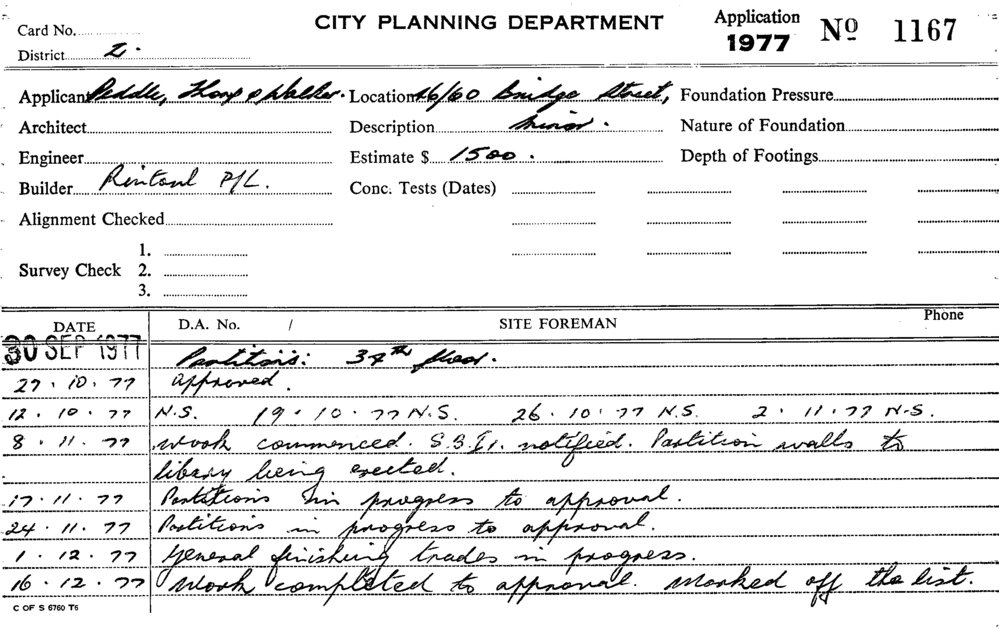 CITY PLANNING DEPARTMENT
Application
1977 No 1167
Card No.
District 2.
Applicant Peddle, Thorp & Walker. Location 46/60 Bridge Street, Foundation Pressure
Architect Description Minor. Nature of Foundation
Engineer Estimate $ 1500. Depth of Footings
Builder Rintoul P/L. Conc. Tests (Dates)
Alignment Checked
1.
Survey Check 2.
3.
DATE D.A. No. / SITE FOREMAN Phone
30 SEP 1977 Partitions: 34th floor.
27.10.77 Approved.
12.10.77 N.S. 19.10.77 N.S. 26.10.77 N.S. 2.11.77 N.S.
8.11.77 Work commenced. notified. Partition walls to
library being erected.
17.11.77 Partitions in progress to approval.
24.11.77 Partitions in progress to approval.
1.12.77 General finishing trades in progress.
16.12.77 Work completed to approval. Marked off the list.
C OF S 6760 T6